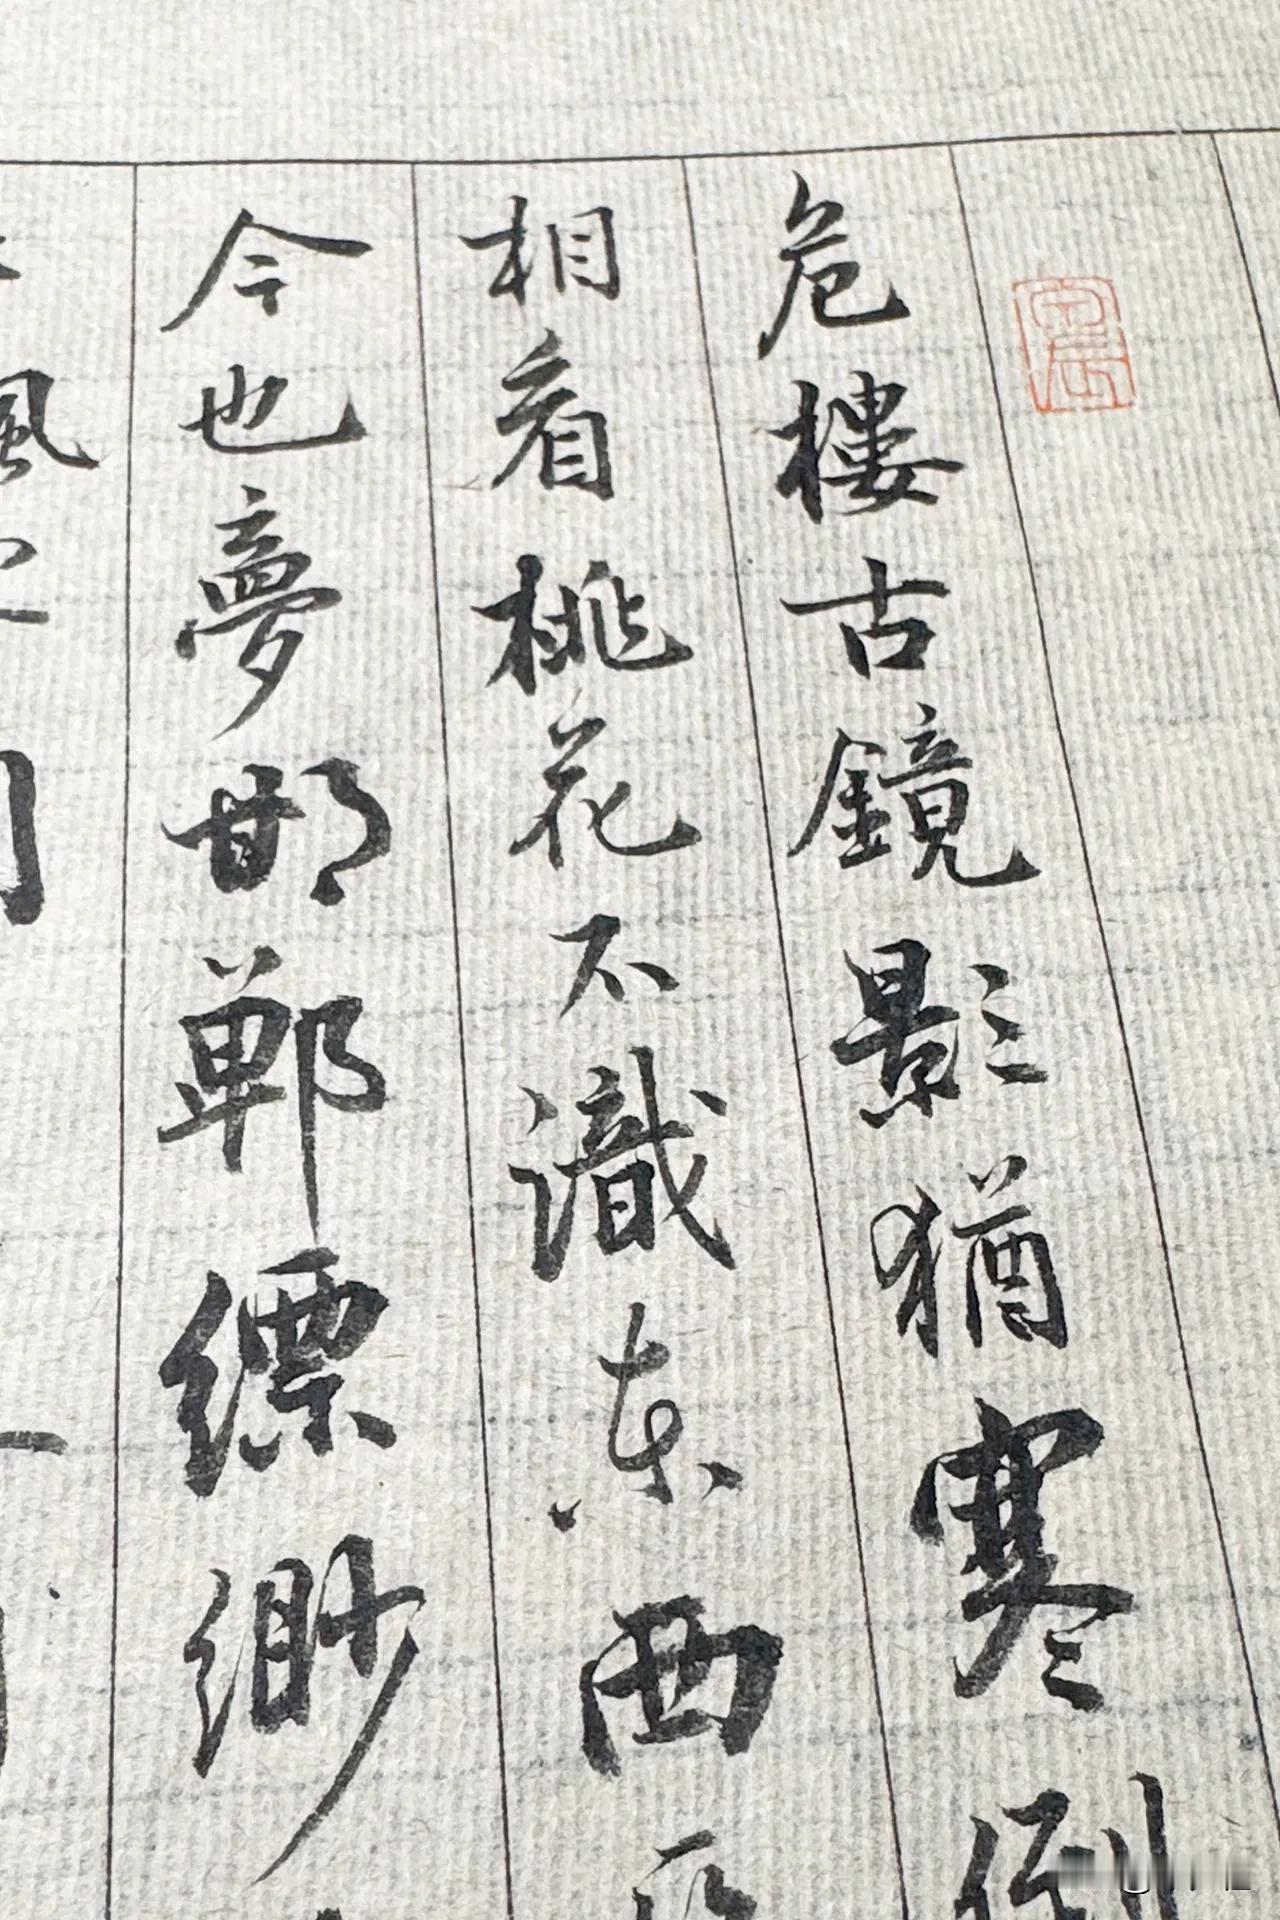 危樓古鏡影猶寒倒
相看桃花不識東西
今也夢邯鄲縹緲
風